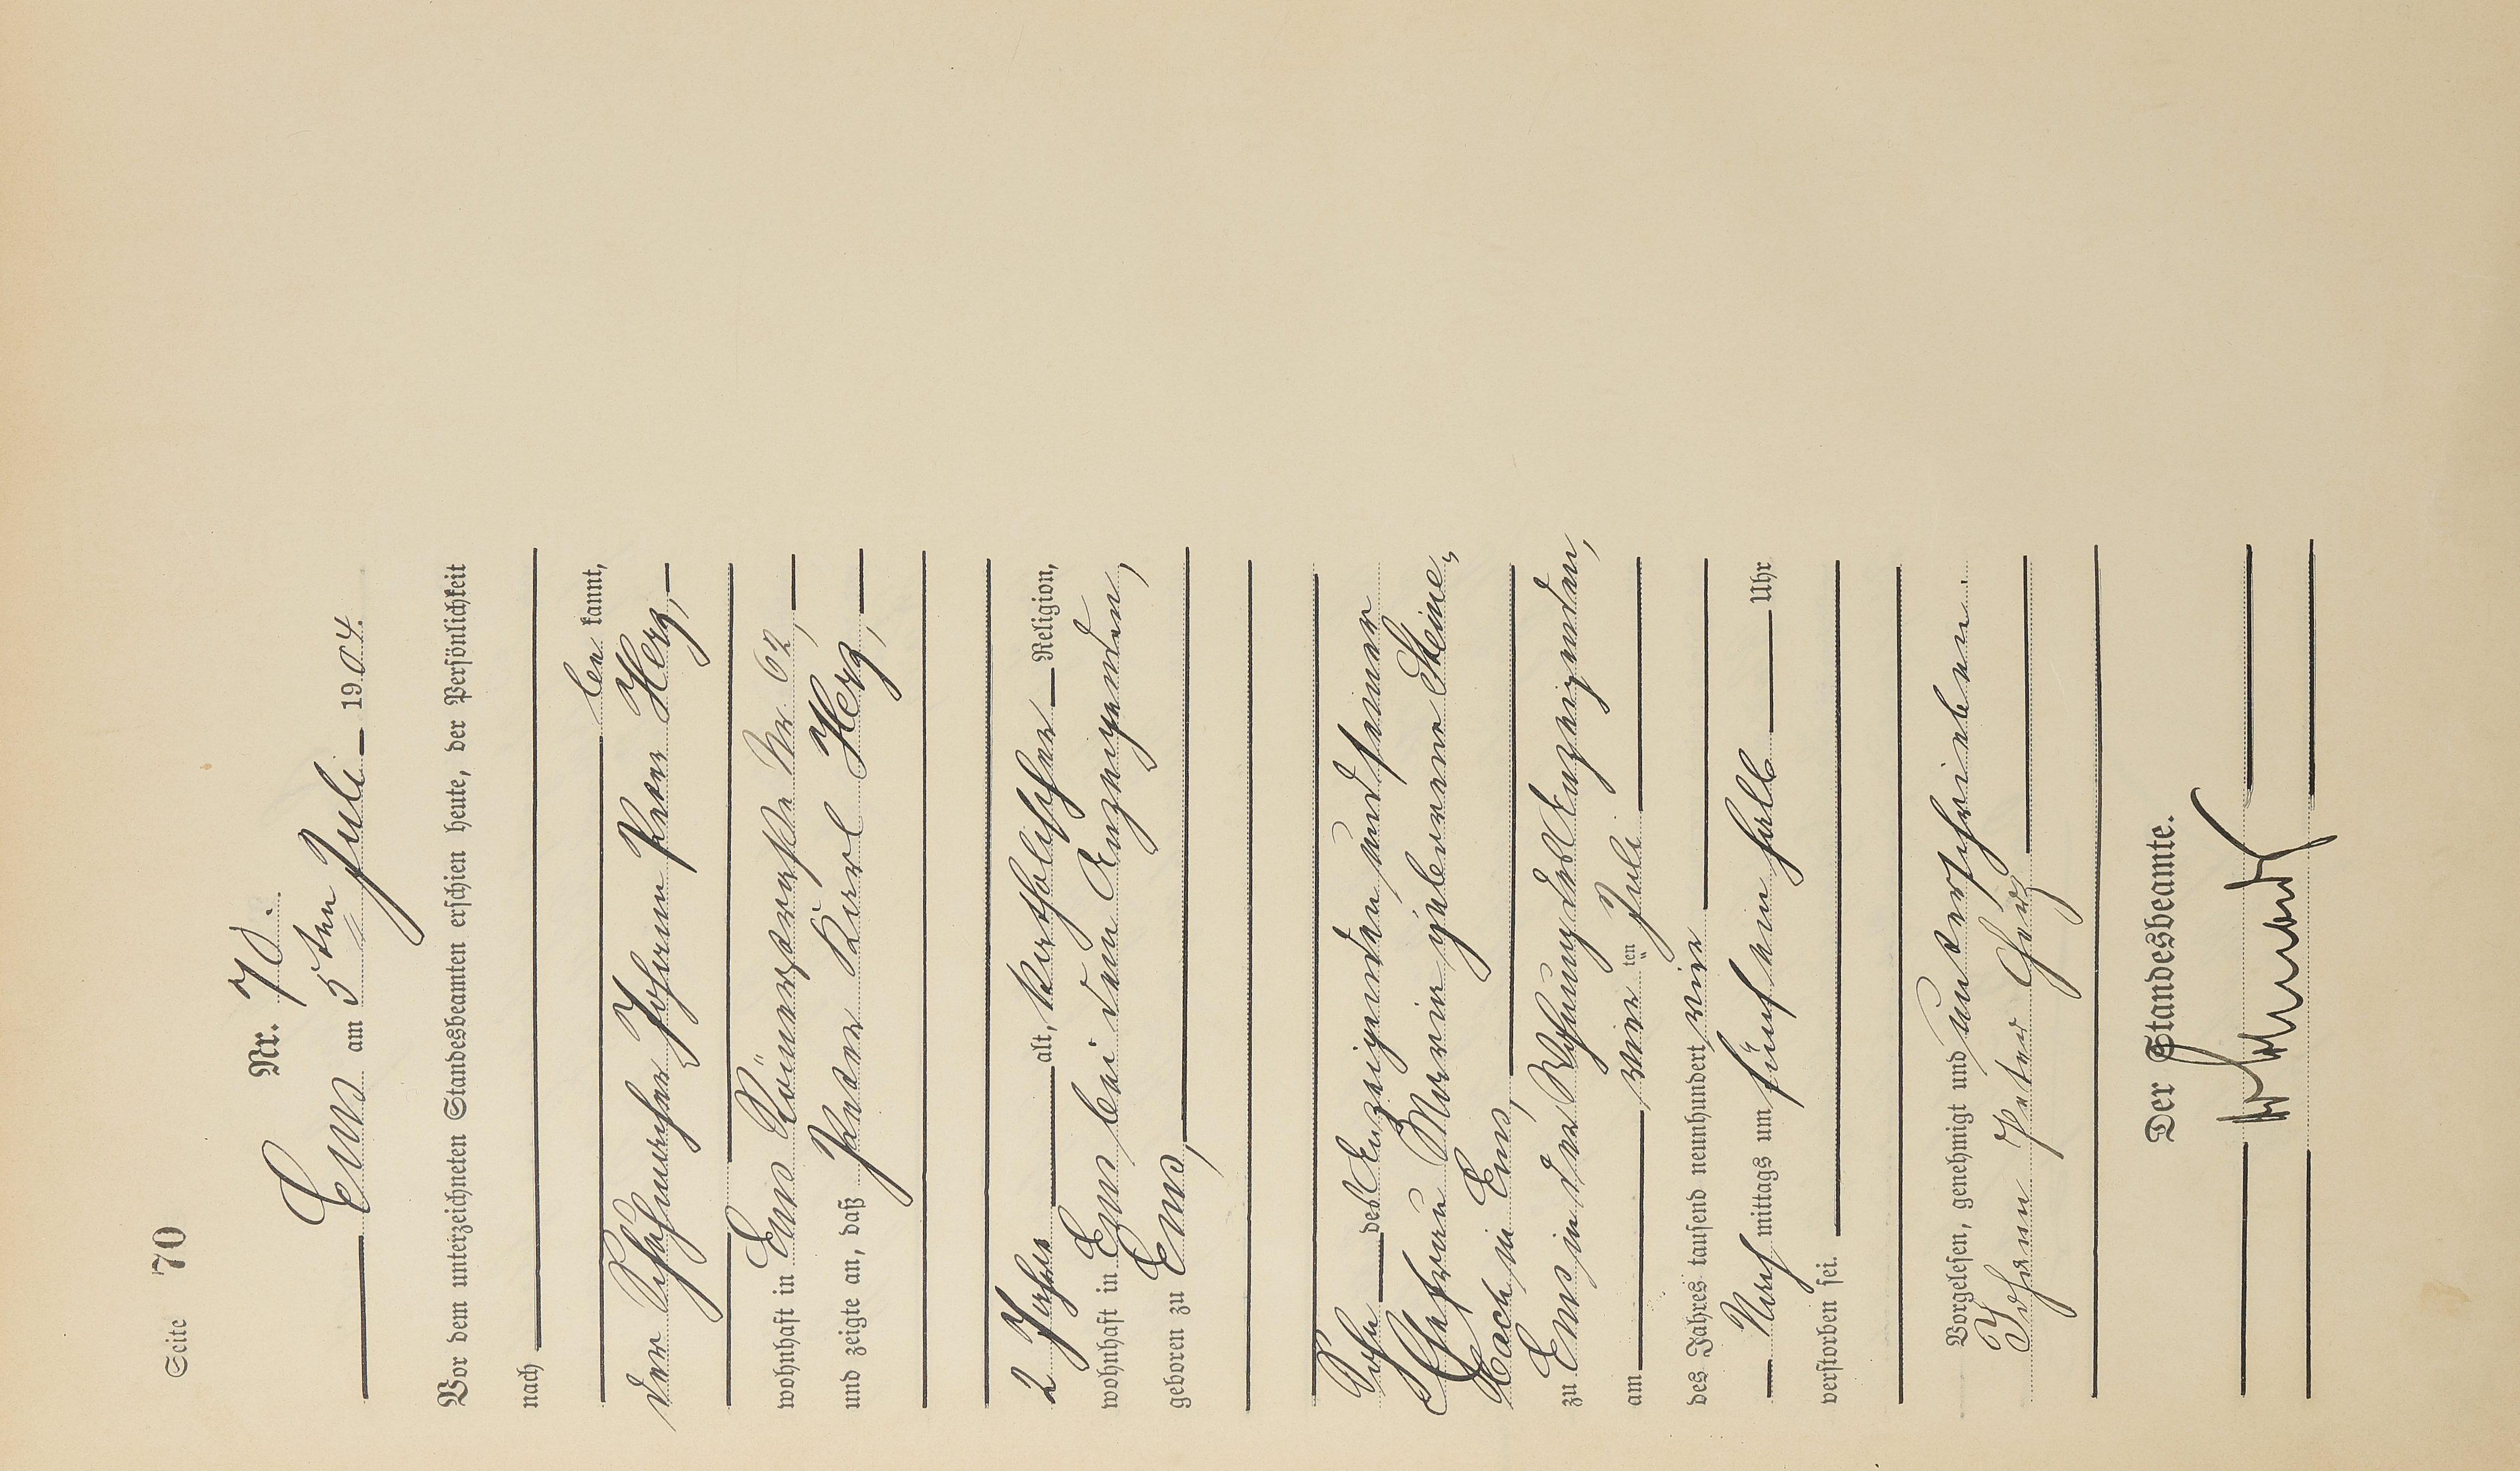 Seite 70
Nr. 70.
Ems am 5ten Juli 1904.
Vor dem unterzeichneten Standesbeamten erschien heute, der Persönlichkeit
nach
bekannt,
der Schuhmacher Johann Peter Herz,
wohnhaft in Ems Römerstraße Nr 62,
und zeigte an, daß Peter Karl Herz,
2 Jahre alt, katholischer Religion,
wohnhaft in Ems bei dem Anzeigenden,
geboren zu Ems,
Sohn des Anzeigenden und seiner
Ehefrau Maria geborene Steine-
bach in Ems,
zu Ems in der Wohnung des Anzeigenden,
am vier ten Juli
des Jahres tausend neunhundert vier
Nachmittags um fünf ein halb Uhr
verstorben sei.
Vorgelesen, genehmigt und unterschrieben.
Johann Peter Herz
Der Standesbeamte.